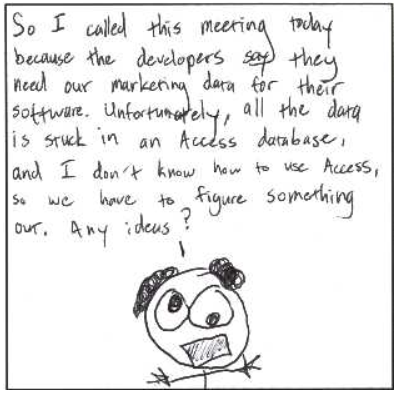 So I called this meeting today
because the developers say they
need our marketing data for their
software. Unfortunately, all the data
is stuck in an Access database,
and I don't know how to use Access,
so we have to figure something
out. Any ideas?